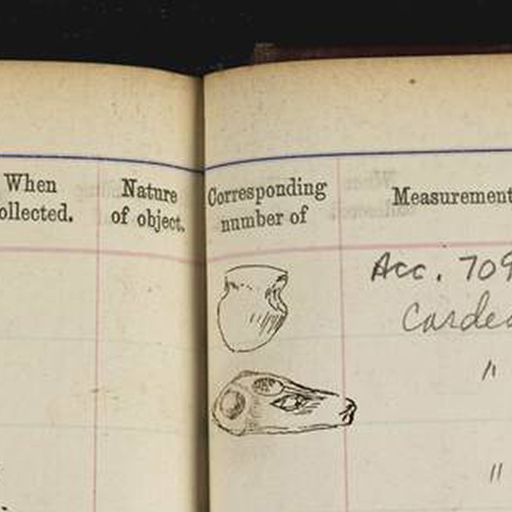 When
ollected.
Nature
of object.
Corresponding
number of
Measurement
Acc. 709
Carded
"
"